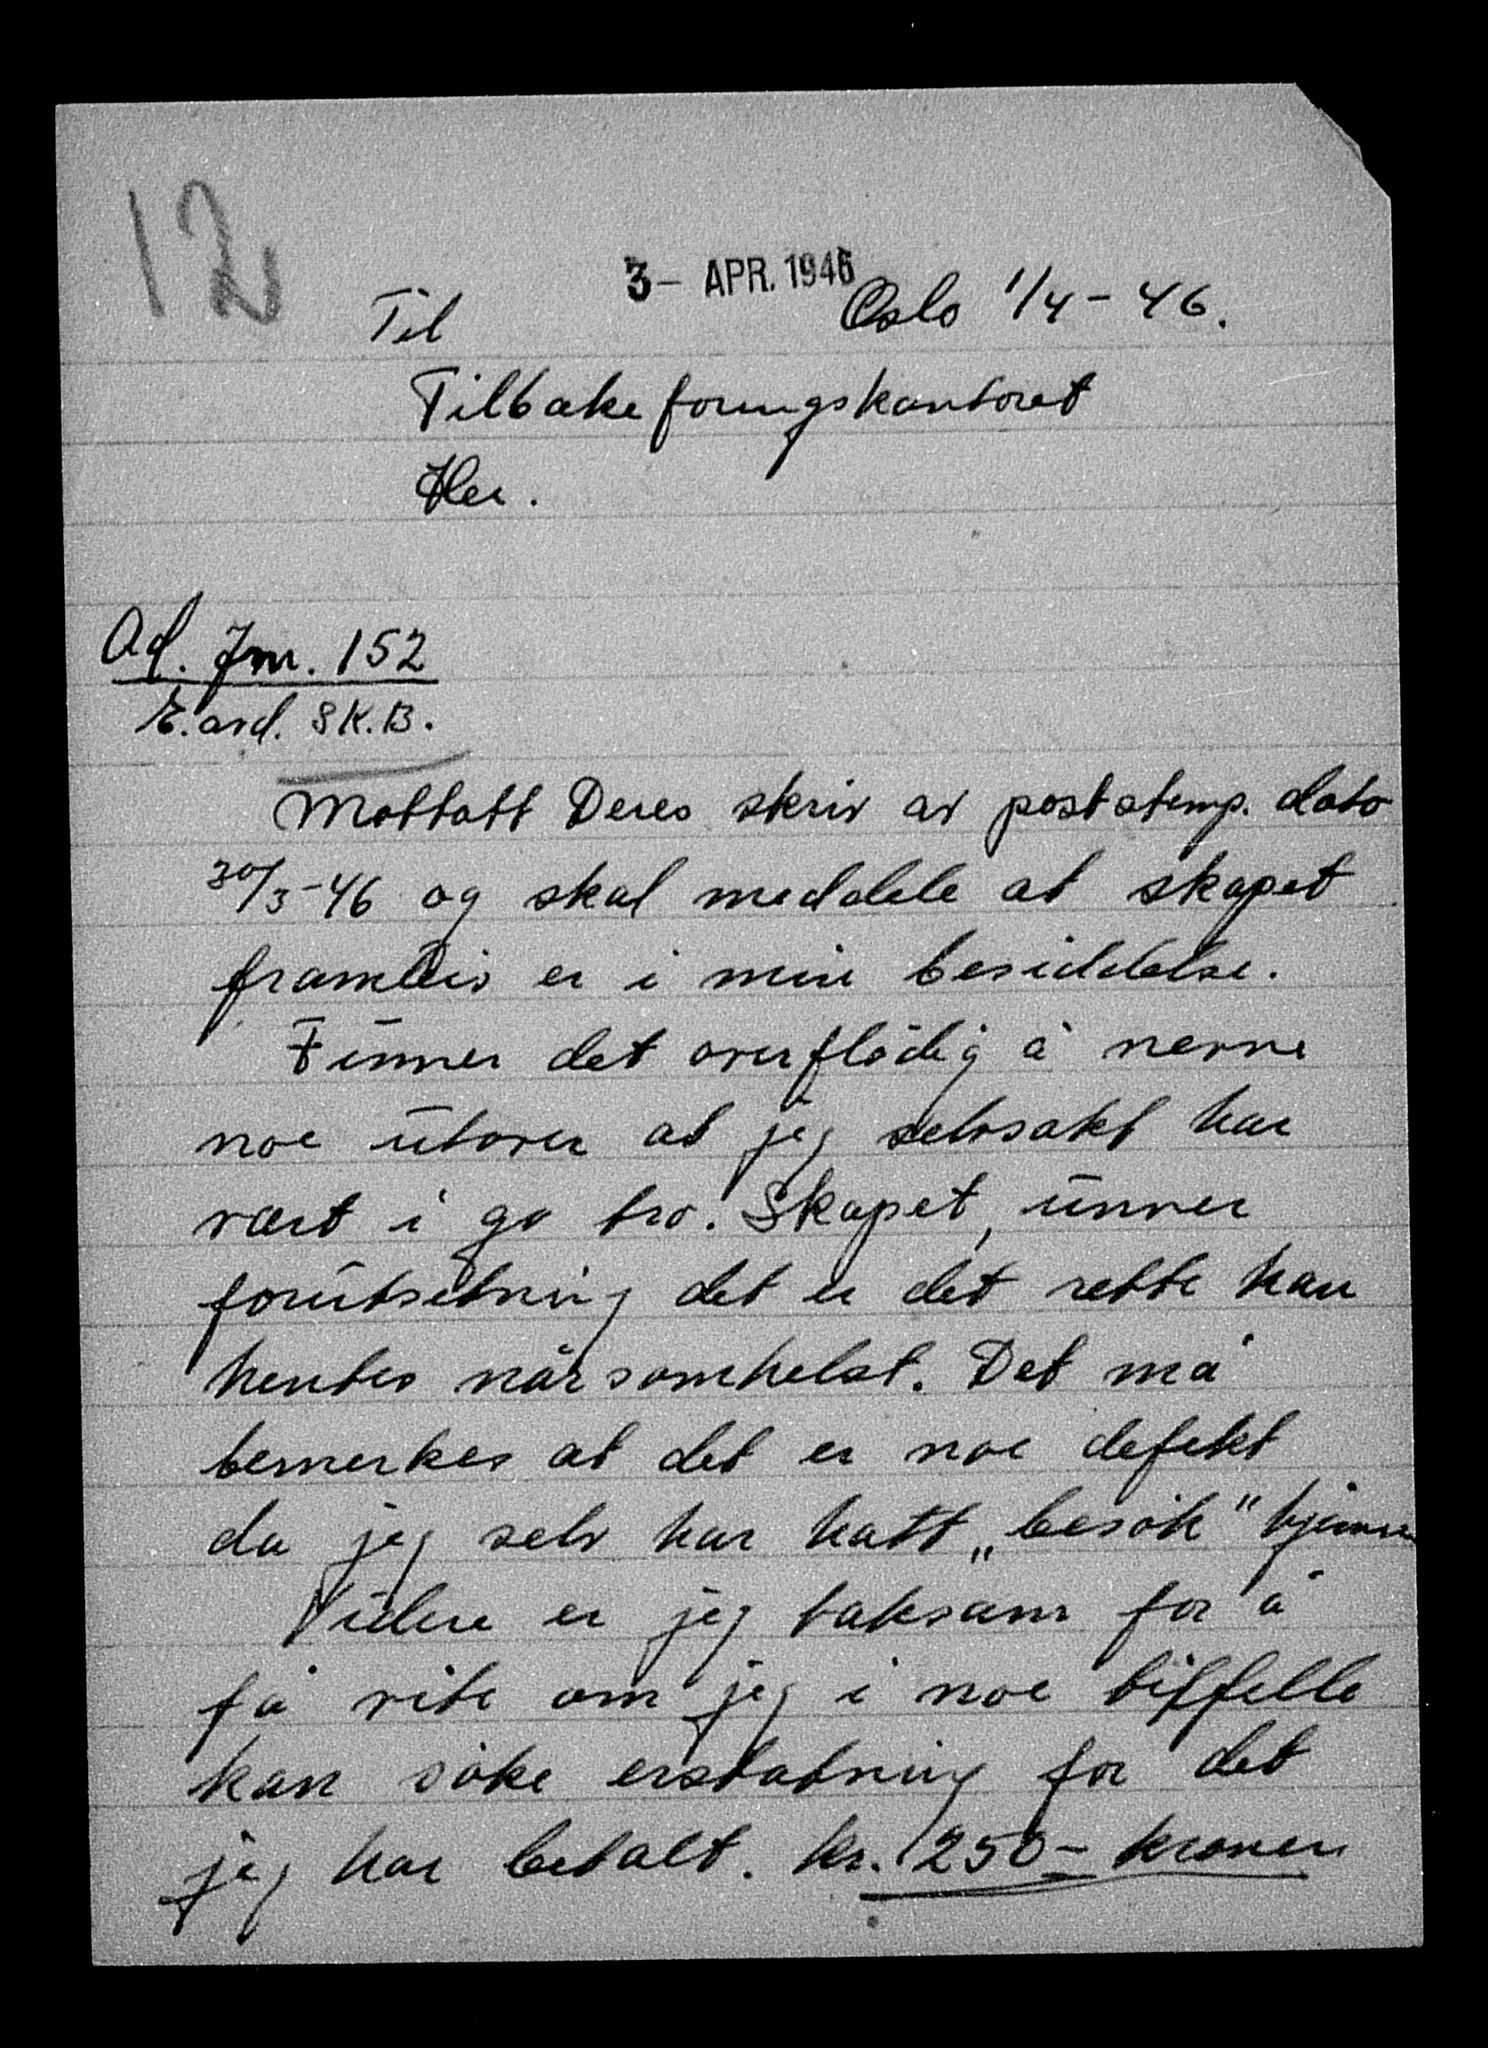 12
3- APR. 1946
Til Oslo 1/4-46.
Tilbakeføringskontoret
Her.
Ad. Jnr. 152
E. avd. SK.B.
Mottatt Deres skriv av poststemp. dato
30/3-46 og skal meddele at skapet
framleis er i min besiddelse.
Finner det overflødig å nevne
noe utover at jeg selvsakt har
vært i go tro. Skapet, unner
forutsetning det er det rette kan
hentes når somhelst. Det må
bemerkes at det er noe defekt
da jeg selv har hatt „besøk" hjemme
Videre er jeg taksam for å
få vite om jeg i noe tilfelle
kan søke erstatning for det
jeg har betalt. kr. 250- kroner